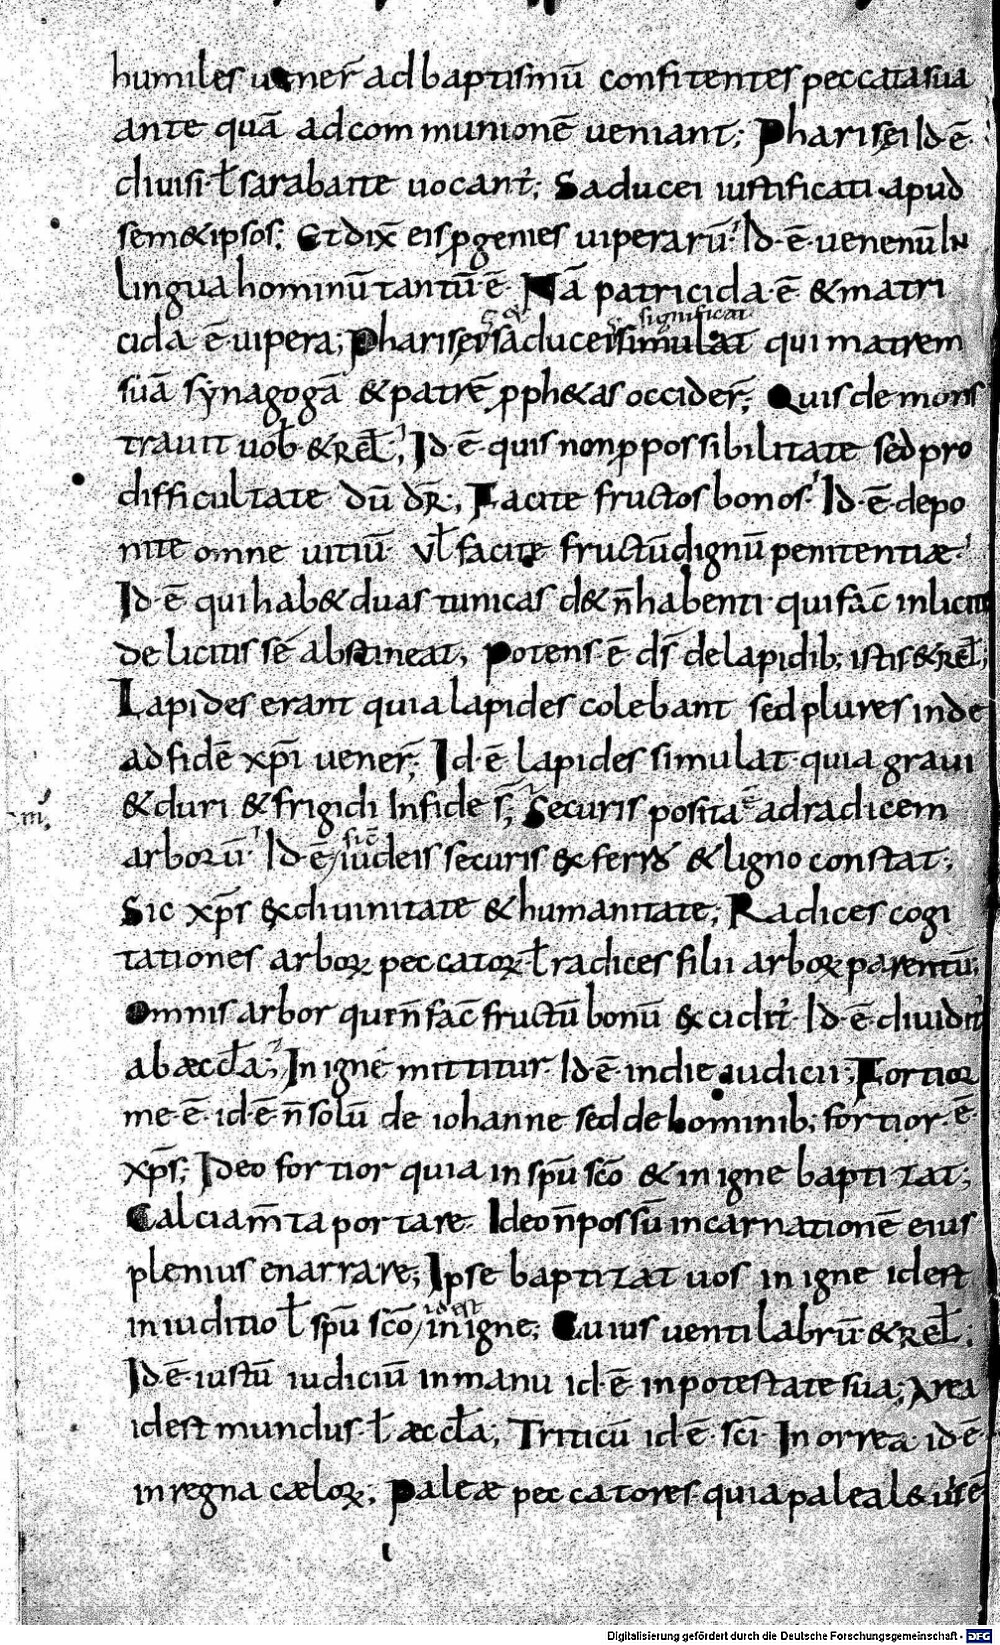 humiles uener̄ ad baptismū confitentes peccata sua
ante quā ad communionē ueniant; Pharisęi Id ē
diuisi ł sarabaite uocant᷑; Saducei iustificati apud
sem&ipsos; Et dix̄ eis ꝓgenies uiperarū Id ē uenenū In
lingua hominū tantū ē Nā patricida ē & matri
significat
cida ē uipera; Pharisęi saducei simulat qui matrem
suā synagogā & patrē ꝓph&as occider̄; Quis demons
trauit uob̄ & rel̄; Id ē quis non ꝓ possibilitate sed pro
difficultate dū dr̄; Facite fructos bonos Id ē depo
nite omne uitiū Vl̄ facite fructū dignū penitentiæ
Id ē qui hab& duas tunicas d& n̄ habenti qui fac̄ inlicita
de licitis sē abstineat; Potens ē ds̄ de lapidib; istis & rel̄;
Lapides erant quia lapides colebant sed plures inde
ad fidē xp̄i uener̄; Id ē lapides simulat quia graui
& duri & frigidi Infide s̄; Securis posita ē ad radicem
m̄
sic̄
arborū Id ē iudeis securis ex ferro & ligno constat;
Sic xp̄s ex diuinitate & humanitate; Radices cogi
tationes arboꝝ peccatoꝝ ł radices filii arboꝝ parentū;
Omnis arbor qui n̄ fac̄ fructū bonū excidit᷑ Id ē diuidit᷑
ab æccl̄a; In igne mittitur Id ē in die iudicii; Fortior
me ē id ē n̄ solū de iohanne sed de hominib; fortior ē
xp̄s; Ideo fortior quia in sp̄u sc̄o & in igne baptizat;
Calciam̄ta portare Ideo n̄ possū incarnationē eius
plenius enarrare; Ipse baptizat uos in igne idest
idest
in iuditio ł sp̄u sc̄o in igne; Cuius uentilabrū & rel̄;
Id ē iustū iudiciū in manu id ē in potestate sua; Area
idest mundus ł æccl̄a; Triticū id ē sc̄i In orrea id ē
in regna cæloꝝ; Paleæ peccatores quia palea l&
Digitalisierung gefördert durch die Deutsche Forschungsgemeinschaft - DFG